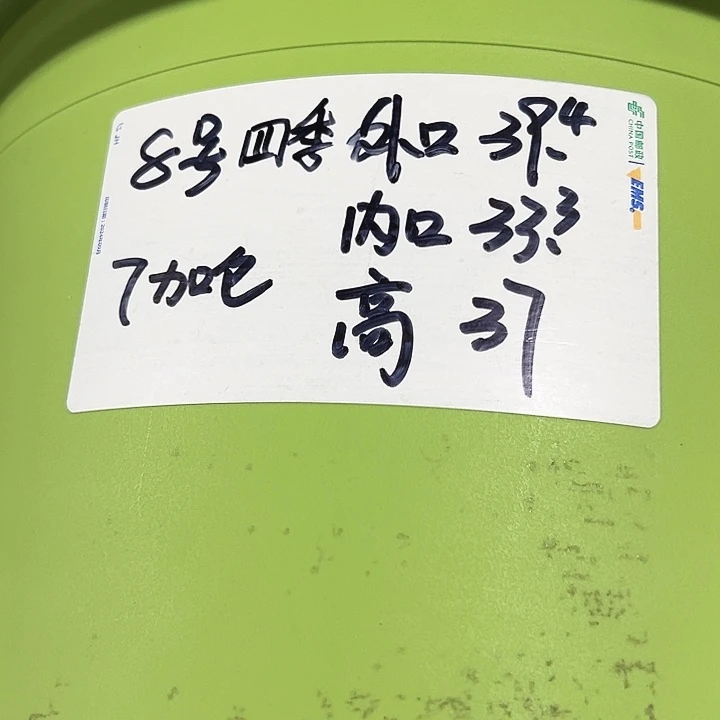 8号四季 外口 39.4
内口 33.3
7加仑
高 37
中国邮政
CHINA POST
EMS